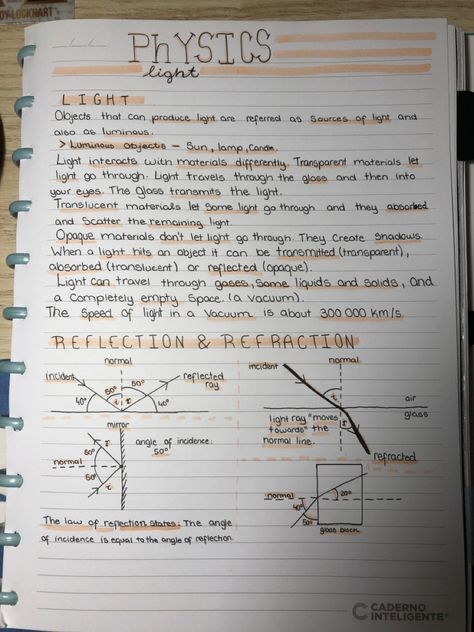 DY-LOCKHART™
PHYSICS
light
LIGHT
Objects that can produce light are referred as Sources of light and
also as luminous.
> Luminous Objects – Sun, lamp, Candle.
Light interacts with materials differently. Transparent materials let
light go through. Light travels through the glass and then into
your eyes. The Glass transmits the light.
Translucent materials let Some light go through and they absorbed
and Scatter the remaining light.
Opaque materials don't let light go through. They Create Shadows.
When a light hits an object it can be transmitted (transparent),
absorbed (translucent) or reflected (opaque).
Light Can travel through gases, Some liquids and Solids, and
a Completely empty Space. (a vacuum).
The Speed of light in a Vacuum is about 300 000 km/s.
REFLECTION & REFRACTION
normal
incident
reflected
ray
50°
50°
40°
i
r
40°
mirror
50°
r
normal
50°
i
angle of incidence:
50°
The law of reflection States: The angle
of incidence is equal to the angle of reflection.
normal
incident
i
air
glass
light ray "moves
towards" the
normal line.
r
refracted
normal
20°
40°
50°
glass block
CADERNO
INTELIGENTE®